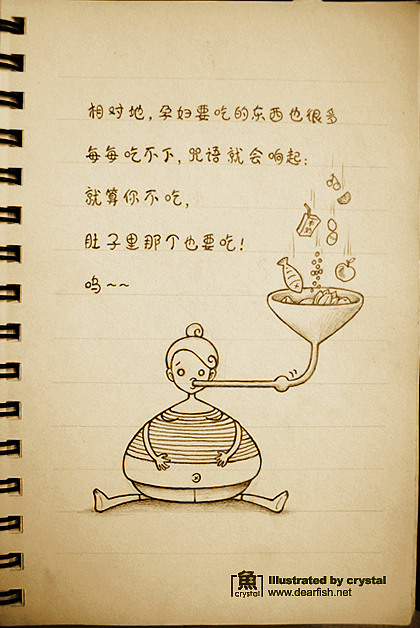 相对地，孕妇要吃的东西也很多
每每吃不下，咒语就会响起：
就算你不吃，
肚子里那个也要吃！
呜~~
魚
crystal
Illustrated by crystal
www.dearfish.net